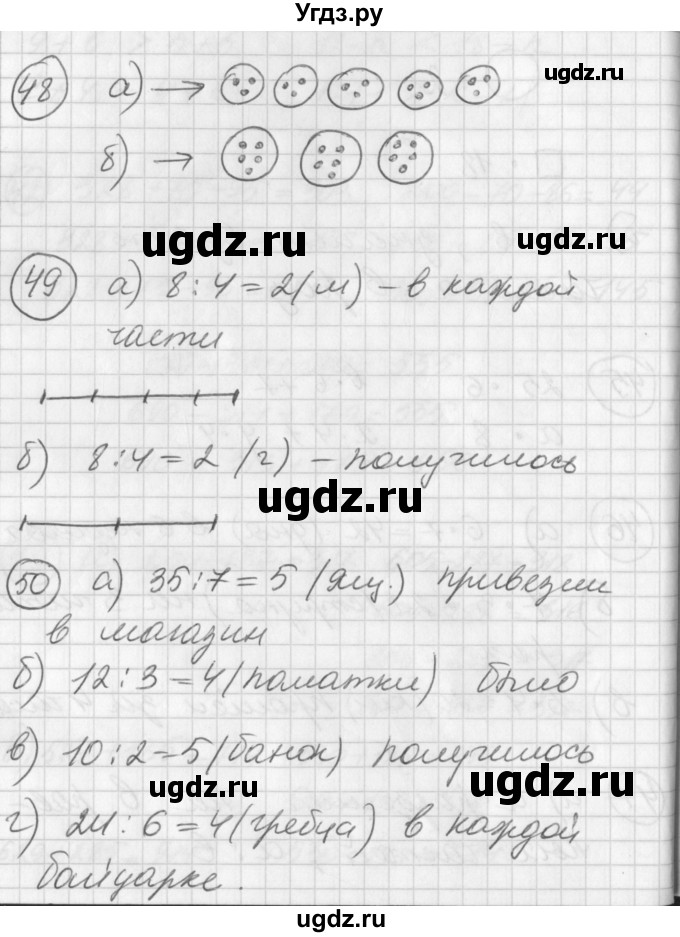 Угдз.ру
48 а) →
ugdz.ru
б) →
ugdz.ru
49 а) 8:4=2(м) – в каждой
части
б) 8:4=2 (г) – получилось
ugdz.ru
50 а) 35:7=5 (ящ.) привезли
в магазин
б) 12:3=4(палатки) было
в) 10:2=5(банок) получилось
ugdz.ru ugdz.ru
г) 24:6=4(гребца) в каждой
байдарке.
ugdz.ru